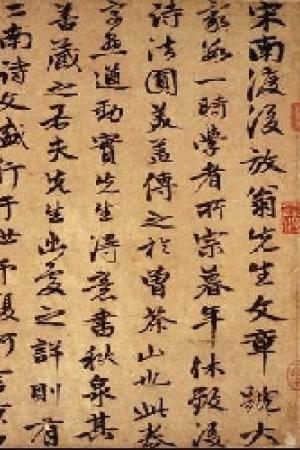 宋南渡後放翁先生文章號大
家爲一時學者所宗暮年休致後
詩法圓美蓋傳之於曾茶山也此卷
道勁實先生得意書秋泉其
善藏之若夫先生出處之詳則有
二南詩文盛行于世予復何言